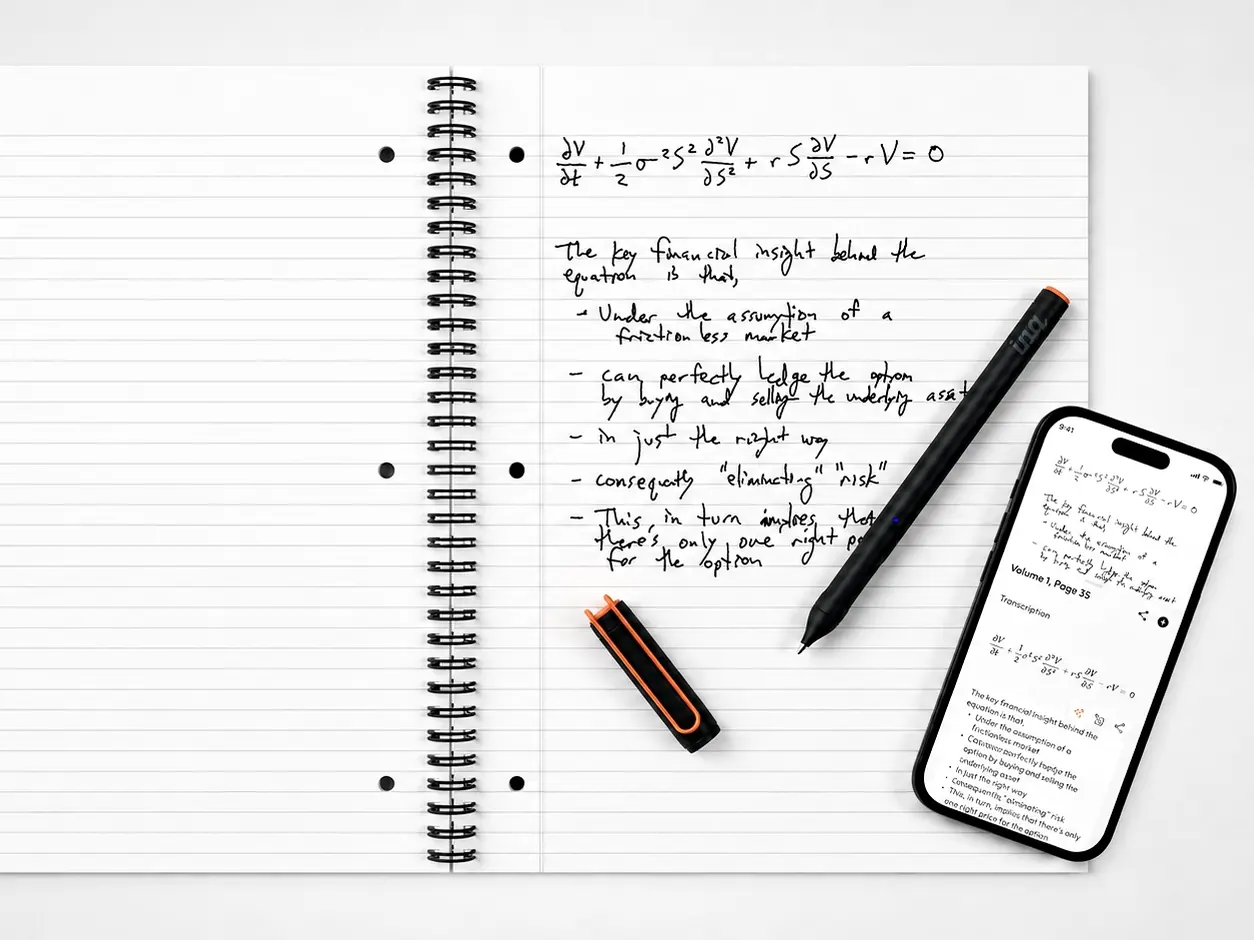 ∂V/∂t + 1/2 σ²S² ∂²V/∂S² + rS ∂V/∂S - rV = 0
The key financial insight behind the
equation is that,
- Under the assumption of a
frictionless market
- can perfectly hedge the option
by buying and selling the underlying asset
- in just the right way
- consequently "eliminating" "risk"
- This, in turn implies, that
there's only one right
for the option
inq
9:41
∂V/∂t + 1/2 σ²S² ∂²V/∂S² + rS ∂V/∂S - rV = 0
The key financial insight behind the
equation is that,
- Under the assumption of a
frictionless market
- can perfectly hedge the option
by buying and selling the underlying asset
Volume 1, Page 35
Transcription
∂V/∂t + 1/2 σ²S² ∂²V/∂S² + rS ∂V/∂S - rV = 0
The key financial insight behind the
equation is that.
• Under the assumption of a
frictionless market
• perfectly the
option by buying and selling the
underlying asset
• In just the right way
• Consequently, risk
• This, in turn, implies that there's only
one right price for the option